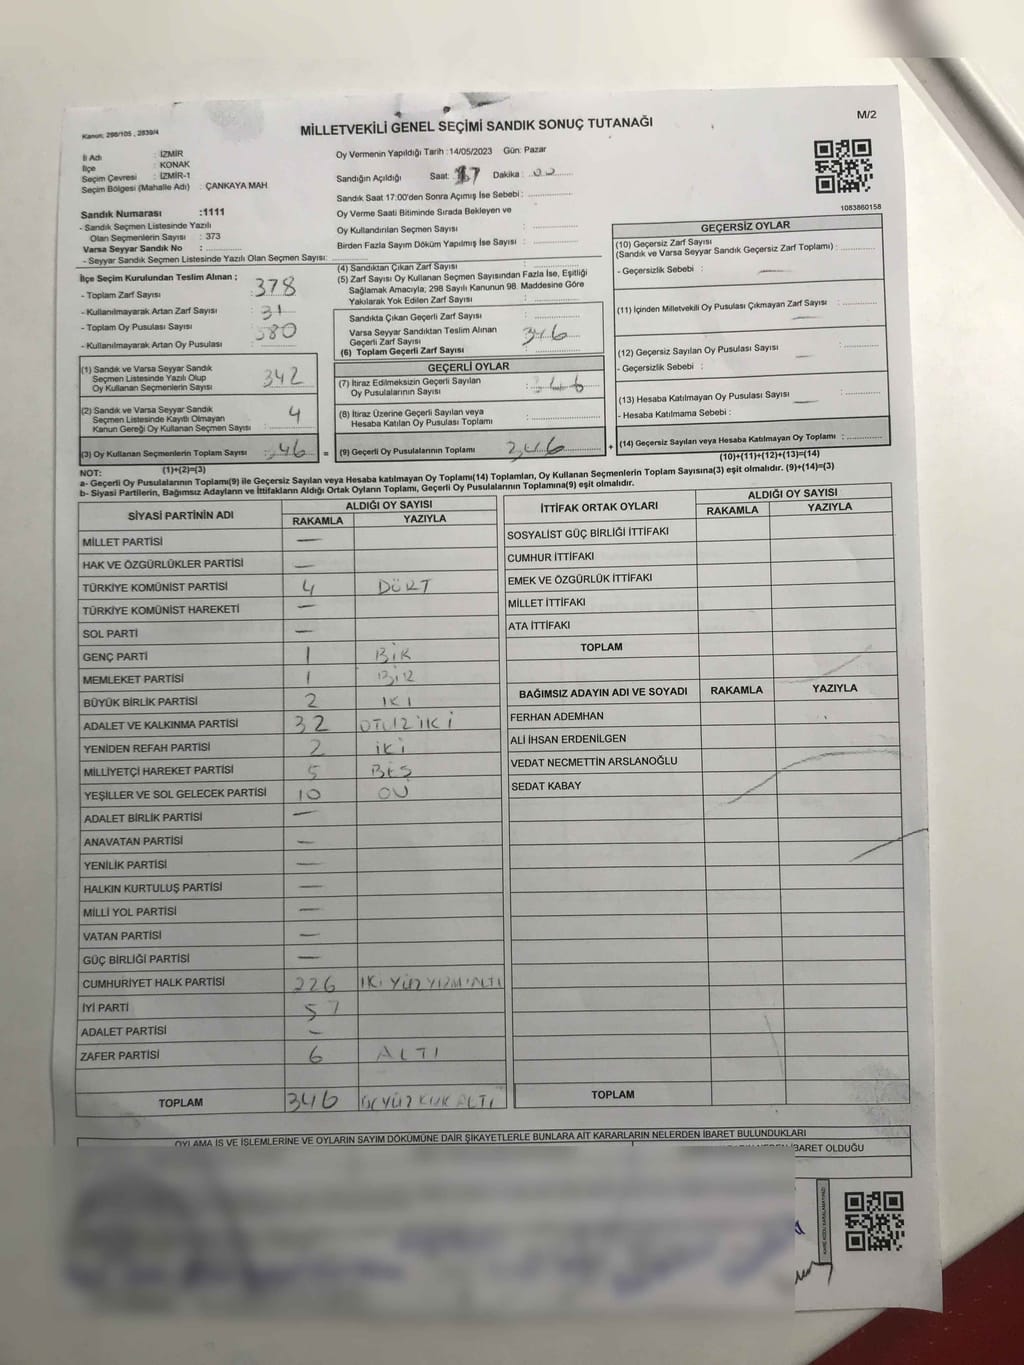 M/2
Kanun: 298/105 , 2839/4
MİLLETVEKİLİ GENEL SEÇİMİ SANDIK SONUÇ TUTANAĞI
İl Adı : İZMİR
İlçe : KONAK
Seçim Çevresi : İZMİR-1
Seçim Bölgesi (Mahalle Adı) : ÇANKAYA MAH
Oy Vermenin Yapıldığı Tarih :14/05/2023 Gün: Pazar
Sandığın Açıldığı Saat: 17 Dakika : 00
Sandık Saat 17:00'den Sonra Açımış İse Sebebi :
Oy Verme Saati Bitiminde Sırada Bekleyen ve
Oy Kullandırılan Seçmen Sayısı :
Birden Fazla Sayım Döküm Yapılmış İse Sayısı :
1083860158
Sandık Numarası :1111
- Sandık Seçmen Listesinde Yazılı
Olan Seçmenlerin Sayısı : 373
Varsa Seyyar Sandık No :
- Seyyar Sandık Seçmen Listesinde Yazılı Olan Seçmen Sayısı:
İlçe Seçim Kurulundan Teslim Alınan ;
- Toplam Zarf Sayısı : 378
- Kullanılmayarak Artan Zarf Sayısı : 31
- Toplam Oy Pusulası Sayısı : 380
- Kullanılmayarak Artan Oy Pusulası :
(1) Sandık ve Varsa Seyyar Sandık
Seçmen Listesinde Yazılı Olup
Oy Kullanan Seçmenlerin Sayısı : 342
(2) Sandık ve Varsa Seyyar Sandık
Seçmen Listesinde Kayıtlı Olmayan
Kanun Gereği Oy Kullanan Seçmen Sayısı : 4
(3) Oy Kullanan Seçmenlerin Toplam Sayısı : 346
(1)+(2)=(3)
(4) Sandıktan Çıkan Zarf Sayısı :
(5) Zarf Sayısı Oy Kullanan Seçmen Sayısından Fazla İse, Eşitliği
Sağlamak Amacıyla; 298 Sayılı Kanunun 98. Maddesine Göre
Yakılarak Yok Edilen Zarf Sayısı :
Sandıkta Çıkan Geçerli Zarf Sayısı :
Varsa Seyyar Sandıktan Teslim Alınan
Geçerli Zarf Sayısı :
(6) Toplam Geçerli Zarf Sayısı : 346
GEÇERLİ OYLAR
(7) İtiraz Edilmeksizin Geçerli Sayılan
Oy Pusulalarının Sayısı : 346
(8) İtiraz Üzerine Geçerli Sayılan veya
Hesaba Katılan Oy Pusulası Toplamı :
= (9) Geçerli Oy Pusulalarının Toplamı : 346
GEÇERSİZ OYLAR
(10) Geçersiz Zarf Sayısı
(Sandık ve Varsa Seyyar Sandık Geçersiz Zarf Toplamı) :
- Geçersizlik Sebebi : —
(11) İçinden Milletvekili Oy Pusulası Çıkmayan Zarf Sayısı :
(12) Geçersiz Sayılan Oy Pusulası Sayısı :
- Geçersizlik Sebebi :
(13) Hesaba Katılmayan Oy Pusulası Sayısı :
- Hesaba Katılmama Sebebi :
+ (14) Geçersiz Sayılan veya Hesaba Katılmayan Oy Toplamı :
(10)+(11)+(12)+(13)=(14)
NOT:
a- Geçerli Oy Pusulalarının Toplamı(9) ile Geçersiz Sayılan veya Hesaba katılmayan Oy Toplamı(14) Toplamları, Oy Kullanan Seçmenlerin Toplam Sayısına(3) eşit olmalıdır. (9)+(14)=(3)
b- Siyasi Partilerin, Bağımsız Adayların ve İttifakların Aldığı Ortak Oyların Toplamı, Geçerli Oy Pusulalarının Toplamına(9) eşit olmalıdır.
SİYASİ PARTİNİN ADI ALDIĞI OY SAYISI
RAKAMLA YAZIYLA
MİLLET PARTİSİ —
HAK VE ÖZGÜRLÜKLER PARTİSİ —
TÜRKİYE KOMÜNİST PARTİSİ 4 DÖRT
TÜRKİYE KOMÜNİST HAREKETİ —
SOL PARTİ —
GENÇ PARTİ 1 BİR
MEMLEKET PARTİSİ 1 BİR
BÜYÜK BİRLİK PARTİSİ 2 İKİ
ADALET VE KALKINMA PARTİSİ 32 OTUZ İKİ
YENİDEN REFAH PARTİSİ 2 İKİ
MİLLİYETÇİ HAREKET PARTİSİ 5 BEŞ
YEŞİLLER VE SOL GELECEK PARTİSİ 10
ADALET BİRLİK PARTİSİ —
ANAVATAN PARTİSİ —
YENİLİK PARTİSİ —
HALKIN KURTULUŞ PARTİSİ —
MİLLİ YOL PARTİSİ —
VATAN PARTİSİ —
GÜÇ BİRLİĞİ PARTİSİ —
CUMHURİYET HALK PARTİSİ 226 İKİ YÜZ YİRMİ ALTI
İYİ PARTİ 57
ADALET PARTİSİ —
ZAFER PARTİSİ 6 ALTI
TOPLAM 346 ÜÇ YÜZ KIRK ALTI
İTTİFAK ORTAK OYLARI ALDIĞI OY SAYISI
RAKAMLA YAZIYLA
SOSYALİST GÜÇ BİRLİĞİ İTTİFAKI
CUMHUR İTTİFAKI
EMEK VE ÖZGÜRLÜK İTTİFAKI
MİLLET İTTİFAKI
ATA İTTİFAKI
TOPLAM
BAĞIMSIZ ADAYIN ADI VE SOYADI RAKAMLA YAZIYLA
FERHAN ADEMHAN
ALİ İHSAN ERDENİLGEN
VEDAT NECMETTİN ARSLANOĞLU
SEDAT KABAY
TOPLAM
OYLAMA İŞ VE İŞLEMLERİNE VE OYLARIN SAYIM DÖKÜMÜNE DAİR ŞİKAYETLERLE BUNLARA AİT KARARLARIN NELERDEN İBARET BULUNDUKLARI
İBARET OLDUĞU